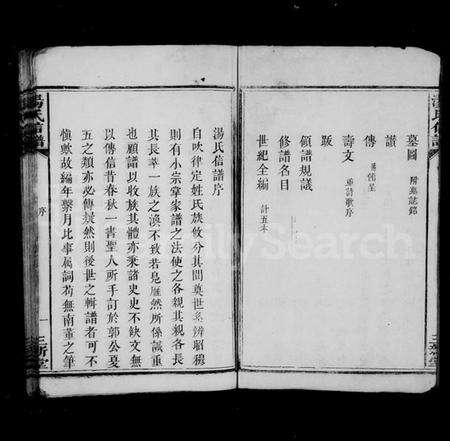 墓圖 附墓誌銘
讃
傳 附行述
壽文 並詩歌序
跋
領譜規議
修譜名目
世紀全編 計五本
湯氏信譜
湯氏信譜序
自吹律定姓氏族攸分其間奠世系辨昭穆
則有小宗掌家譜之法使之各親其親各長
其長萃一族之渙不致若晨雁然所係誠重
也顧譜以收族其體亦秉諸史史不缺文無
以傳信昔春秋一書聖人所手訂於郭公夏
五之類亦必傳疑然則後世之輯譜者可不
慎歟故編年繫月比事屬詞苟無南董之筆
湯氏信譜
序
一
三新堂
FamilySearch